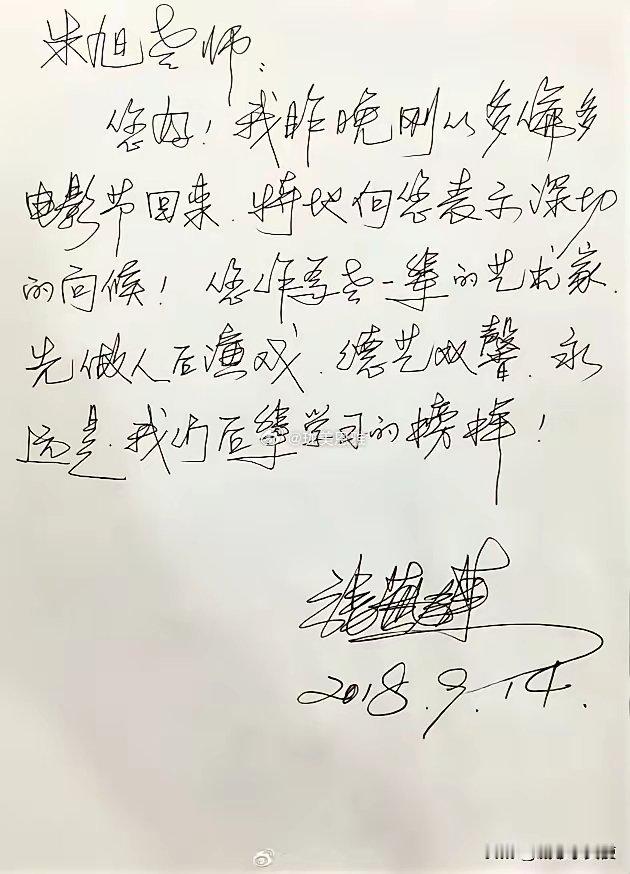 朱旭老师：
您好！我昨晚刚从多伦多
电影节回来，特地向您表示深切
的问候！您作为老一辈的艺术家，
先做人后演戏，德艺双馨，永
远是我们后辈学习的榜样！
2018.9.14.